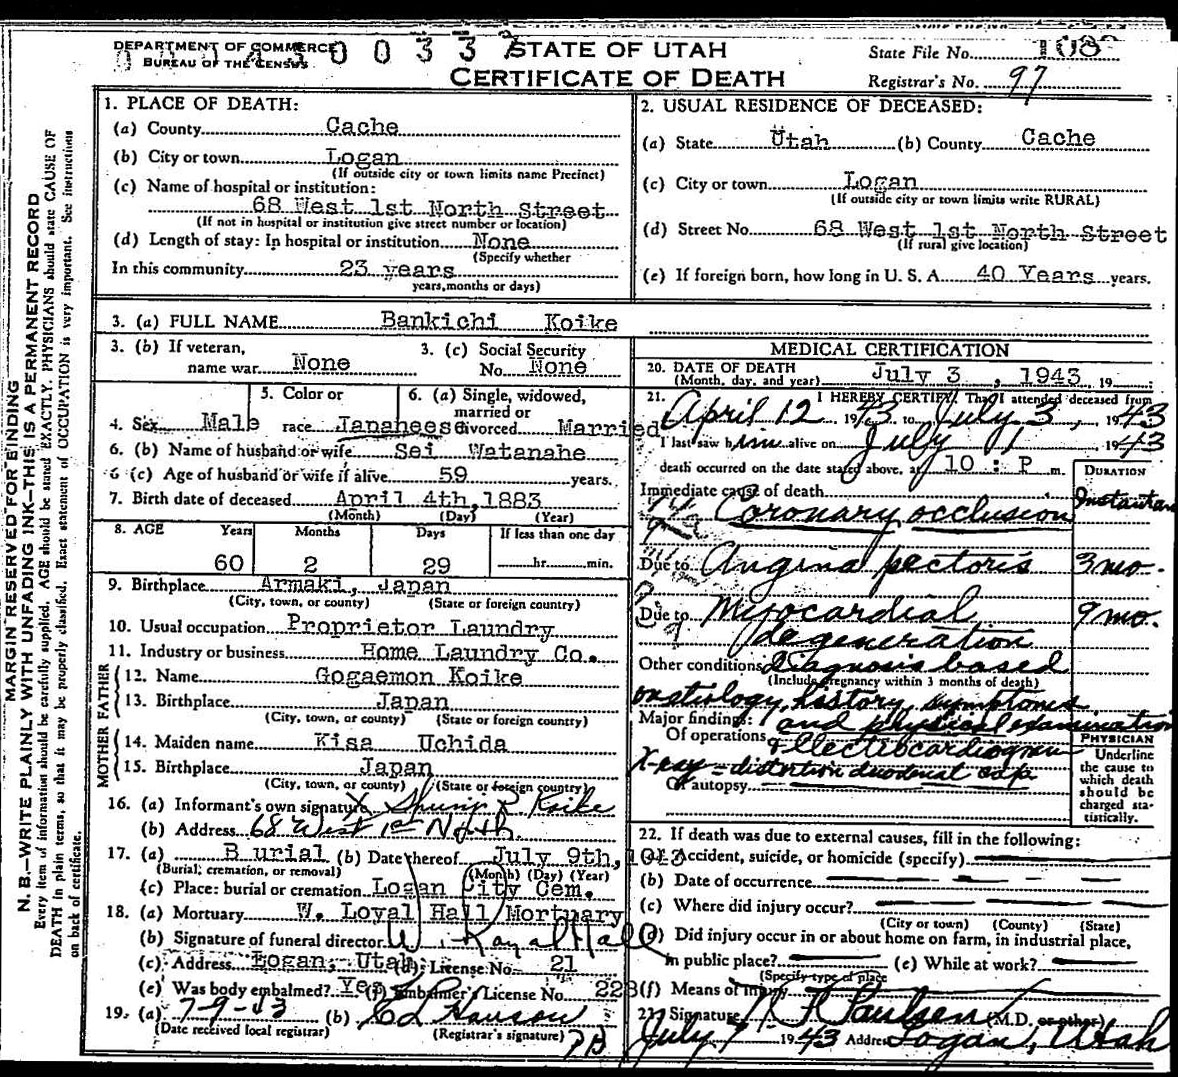 DEPARTMENT OF COMMERCE
BUREAU OF THE CENSUS
STATE OF UTAH
CERTIFICATE OF DEATH
State File No. 108
Registrar's No. 97
MARGIN RESERVED FOR BINDING
N. B.—WRITE PLAINLY WITH UNFADING INK—THIS IS A PERMANENT RECORD
Every item of information should be carefully supplied. AGE should be stated EXACTLY. PHYSICIANS should state CAUSE OF
DEATH in plain terms, so that it may be properly classified. Exact statement of OCCUPATION is very important. See instructions
on back of certificate.
1. PLACE OF DEATH:
(a) County Cache
(b) City or town Logan
(If outside city or town limits name Precinct)
(c) Name of hospital or institution:
68 West 1st North Street
(If not in hospital or institution give street number or location)
(d) Length of stay: In hospital or institution None
(Specify whether
In this community 23 years
years, months or days)
2. USUAL RESIDENCE OF DECEASED:
(a) State Utah (b) County Cache
(c) City or town Logan
(If outside city or town limits write RURAL)
(d) Street No 68 West 1st North Street
(If rural give location)
(e) If foreign born, how long in U. S. A. 40 Years years.
3. (a) FULL NAME Bankichi Koike
3. (b) If veteran,
name war None
3. (c) Social Security
No. None
4. Sex Male
5. Color or
race Japanese
6. (a) Single, widowed,
married or
divorced Married
6. (b) Name of husband or wife Sei Watanabe
6 (c) Age of husband or wife if alive 59 years.
7. Birth date of deceased April 4th, 1883
(Month) (Day) (Year)
8. AGE Years Months Days If less than one day
60 2 29 hr. min.
9. Birthplace Armaki, Japan
(City, town, or county) (State or foreign country)
10. Usual occupation Proprietor Laundry
11. Industry or business Home Laundry Co.
FATHER
12. Name Gogaemon Koike
13. Birthplace Japan
(City, town, or county) (State or foreign country)
MOTHER
14. Maiden name Kisa Uchida
15. Birthplace Japan
(City, town, or county) (State or foreign country)
16. (a) Informant's own signature X Koike
(b) Address 68 West 1st North
17. (a) Burial (b) Date thereof July 9th, 1943
(Burial, cremation, or removal) (Month) (Day) (Year)
(c) Place: burial or cremation Logan City Cem.
18. (a) Mortuary W. Loyal Hall Mortuary
(b) Signature of funeral director W. Loyal Hall
(c) Address Logan, Utah (d) License No. 21
(e) Was body embalmed? Yes (f) Embalmer's License No. 228
19. (a) 7-9-43 (b) Hanson
(Date received local registrar) (Registrar's signature)
MEDICAL CERTIFICATION
20. DATE OF DEATH July 3, 1943 19
(Month, day, and year)
21. I HEREBY CERTIFY, That I attended deceased from
April 12 1943 to July 3, 1943
I last saw him alive on July 1 1943
death occurred on the date stated above, at 10 : P m.
DURATION
Immediate cause of death
Coronary occlusion
Due to Angina pectoris 3 mo.
Due to Myocardial 9 mo.
degeneration
Other conditions Diagnosis based
(Include pregnancy within 3 months of death)
on etiology, history, symptoms
Major findings: and physical examination
Of operations & Electrocardiogram
X-ray = distortion duodenal cap
Of autopsy
PHYSICIAN
Underline
the cause to
which death
should be
charged sta-
tistically.
22. If death was due to external causes, fill in the following:
(a) Accident, suicide, or homicide (specify)
(b) Date of occurrence
(c) Where did injury occur?
(City or town) (County) (State)
(d) Did injury occur in or about home on farm, in industrial place,
in public place? (e) While at work?
(Specify type of place
(f) Means of injury
Signature Paulsen (M.D. or other)
July 7 1943 Address Logan, Utah